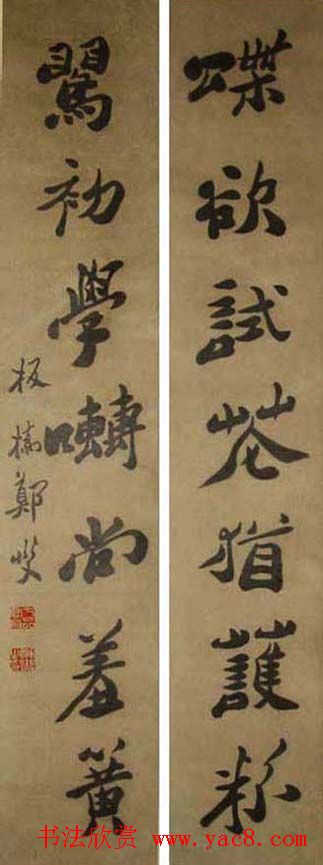 蝶欲試花猶護粉
鶯初學囀尚羞簧
板橋鄭燮
书法欣赏 www.yac8.com